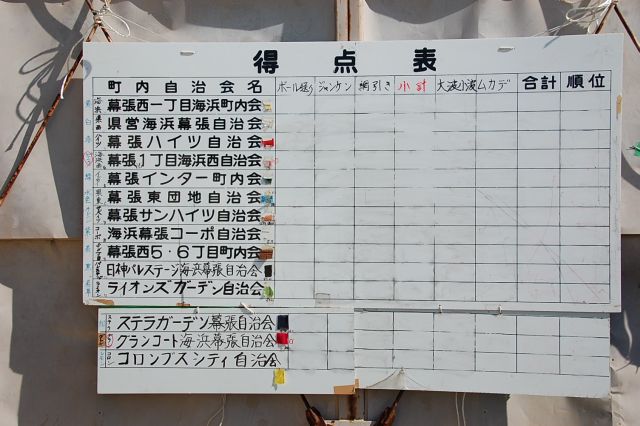 得点表
町内自治会名 ボール送り ジャンケン 綱引き 小計 大波小波 ムカデ 合計 順位
幕張西一丁目海浜町内会
県営海浜幕張自治会
幕張ハイツ自治会
幕張1丁目海浜西自治会
幕張インター町内会
幕張東団地自治会
幕張サンハイツ自治会
海浜幕張コーポ自治会
幕張西5・6丁目町内会
日神パレステージ海浜幕張自治会
ライオンズガーデン自治会
ステラガーデン幕張自治会
グランコート海浜幕張自治会
コロンブスシティ自治会